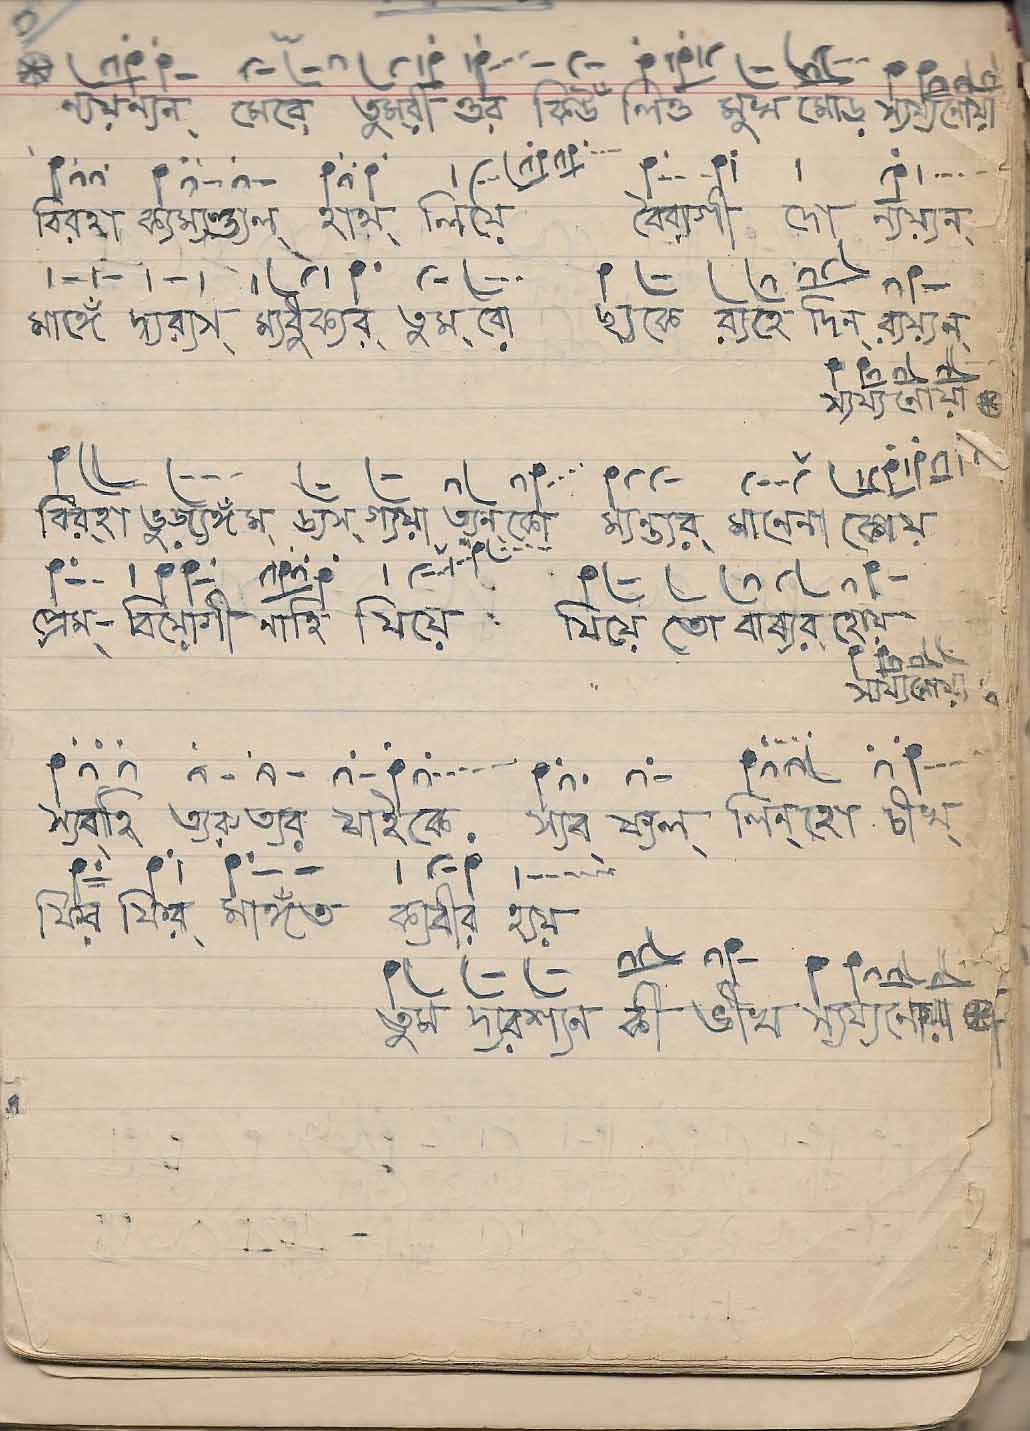 ন্যয়ন্যন্ মেরে তুমরী ওর কিউঁ লিও মুখ মোড় স্যয়্যনোয়া
বিরহা ক্যম্যণ্ড্যল্ হাথ্ লিয়ে বৈরাগী দো ন্যয়্যন্
মাঙ্গেঁ দ্যর‍্যস্ ম্যধুক্যর্ তুম্ রো ছ্যকে র‍্যহে দিন্ র‍্যয়্যন্
স্যয়্যনোয়া
বির্হা ভুজ্যঙ্গঁম্ ড্যস্ গ্যয়া ত্যন্ কো ম্যন্ত্যর্ মানেনা কোয়
প্রেম্-বিয়োগী নাহি যিয়ে যিয়ে তো বাব্যর্ হোয়
স্যয়্যনোয়া
স্যবহি ত্যরুত্যর যাইকে স্যব্ ফ্যল্ লিন্হো চীখ্
ফির ফির্ মাঙ্গঁত ক্যবীর হ্যয়
তুম দ্যরশ্যন কী ভীখ স্যয়্যনোয়া